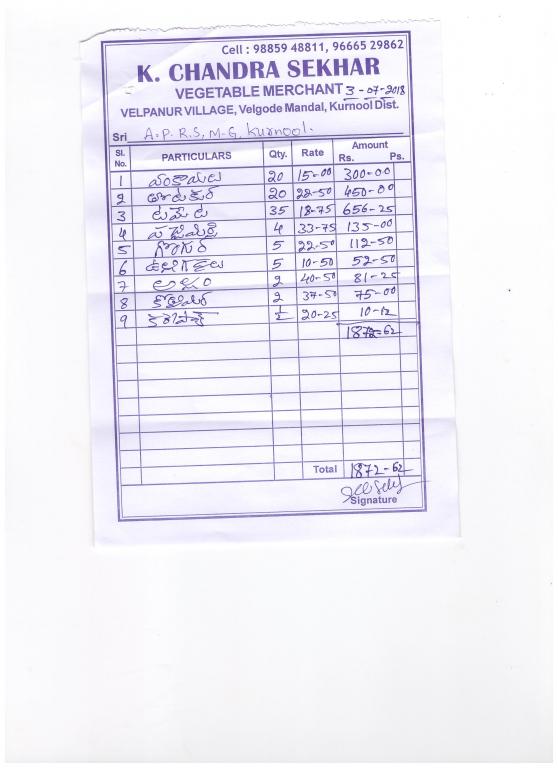 Cell : 98859 48811, 96665 29862
K. CHANDRA SEKHAR
VEGETABLE MERCHANT 3-07-2018
VELPANUR VILLAGE, Velgode Mandal, Kurnool Dist.
Sri A.P.R.S, M-G, Kurnool.
Sl. No. PARTICULARS Qty. Rate Amount Rs. Ps.
1 వంకాయలు 20 15-00 300-00
2 20 22-50 450-00
3 టమోట 35 18-75 656-25
4 పచ్చిమిర్చి 4 33-75 135-00
5 గోంగూర 5 22-50 112-50
6 ఉల్లిగడ్డలు 5 10-50 52-50
7 అల్లం 2 40-50 81-25
8 కొత్తిమీర 2 37-50 75-00
9 కరేపాకు ½ 20-25 10-12
1872-62
Total 1872-62
Signature